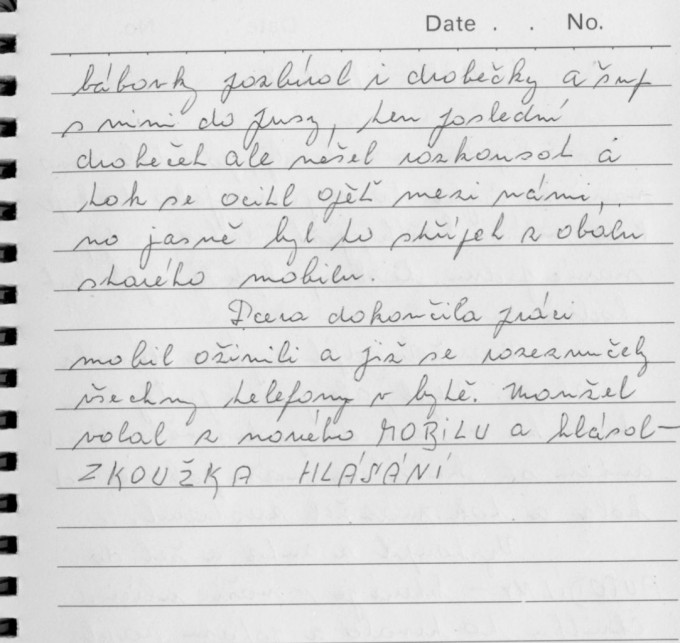 Date . . No.
bábovky pozbíral i drobečky a šup
s nimi do pusy, ten poslední
drobeček ale nešel rozkousat a
tak se ocitl opět mezi námi,
no jasně byl to střípek z obalu
starého mobilu.
Dcera dokončila práci
mobil oživili a již se rozezvučely
všechny telefony v bytě. Manžel
volal z nového MOBiLU a hlásal-
ZKOUŽKA HLÁSÁNÍ